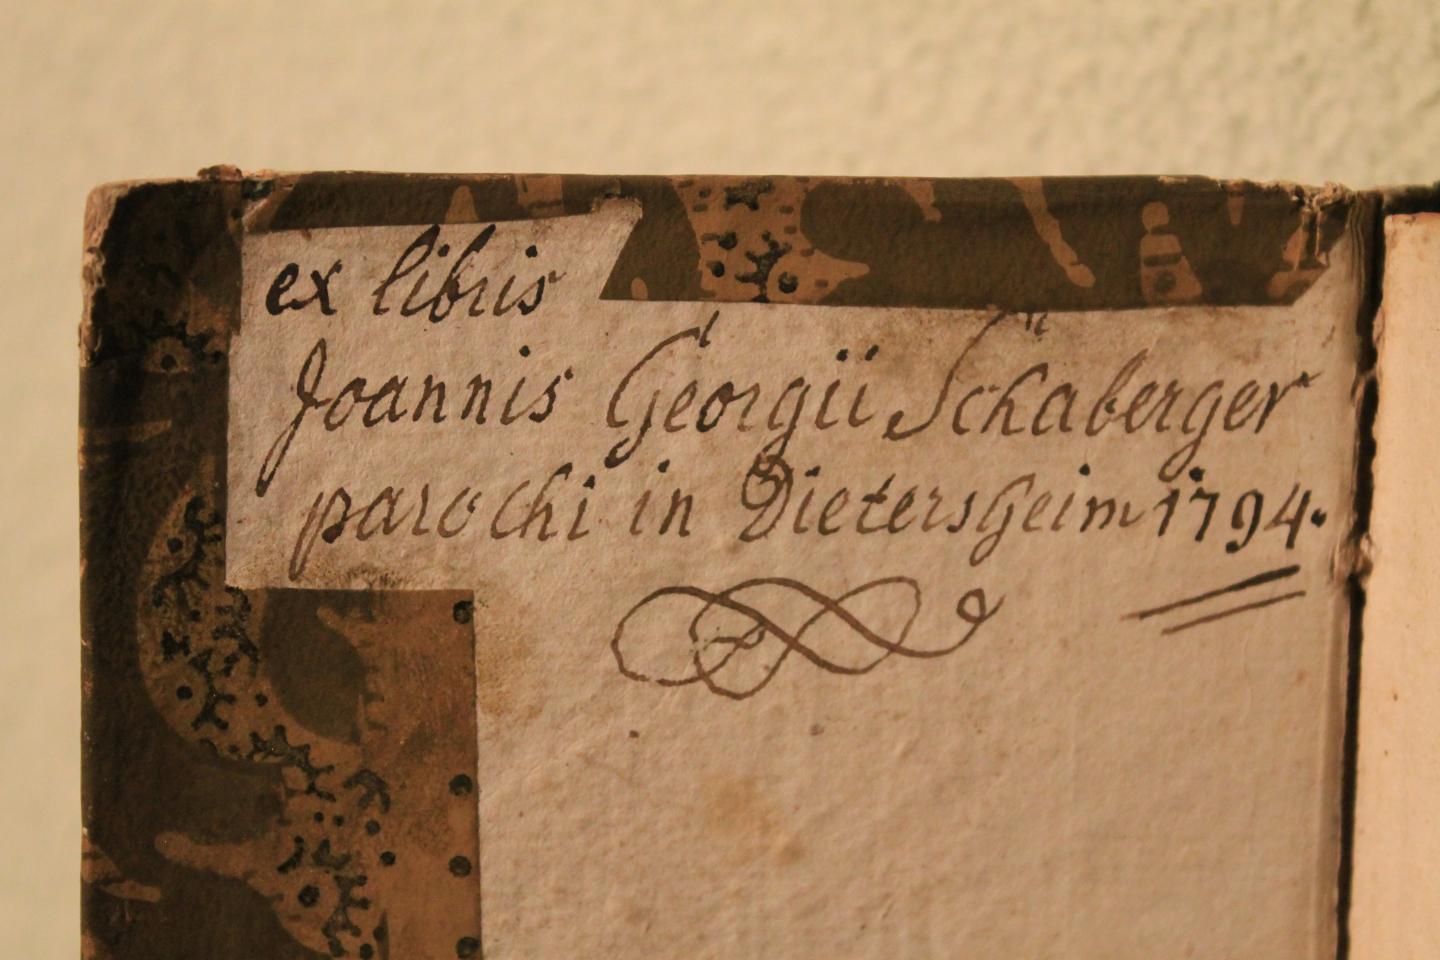 ex libris
Joannis Georgii Schaberger
parochi in Dietersheim 1794.